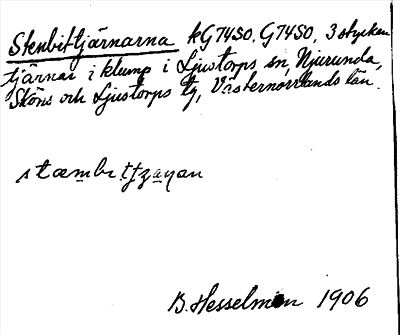 Stenbittjärnarna kG74SO. G74SO. 3 stycken
tjärnar i klump i Ljustorps sn, Njurunda,
Sköns och Ljustorps tg, Västernorrlands län.
B. Hesselman 1906